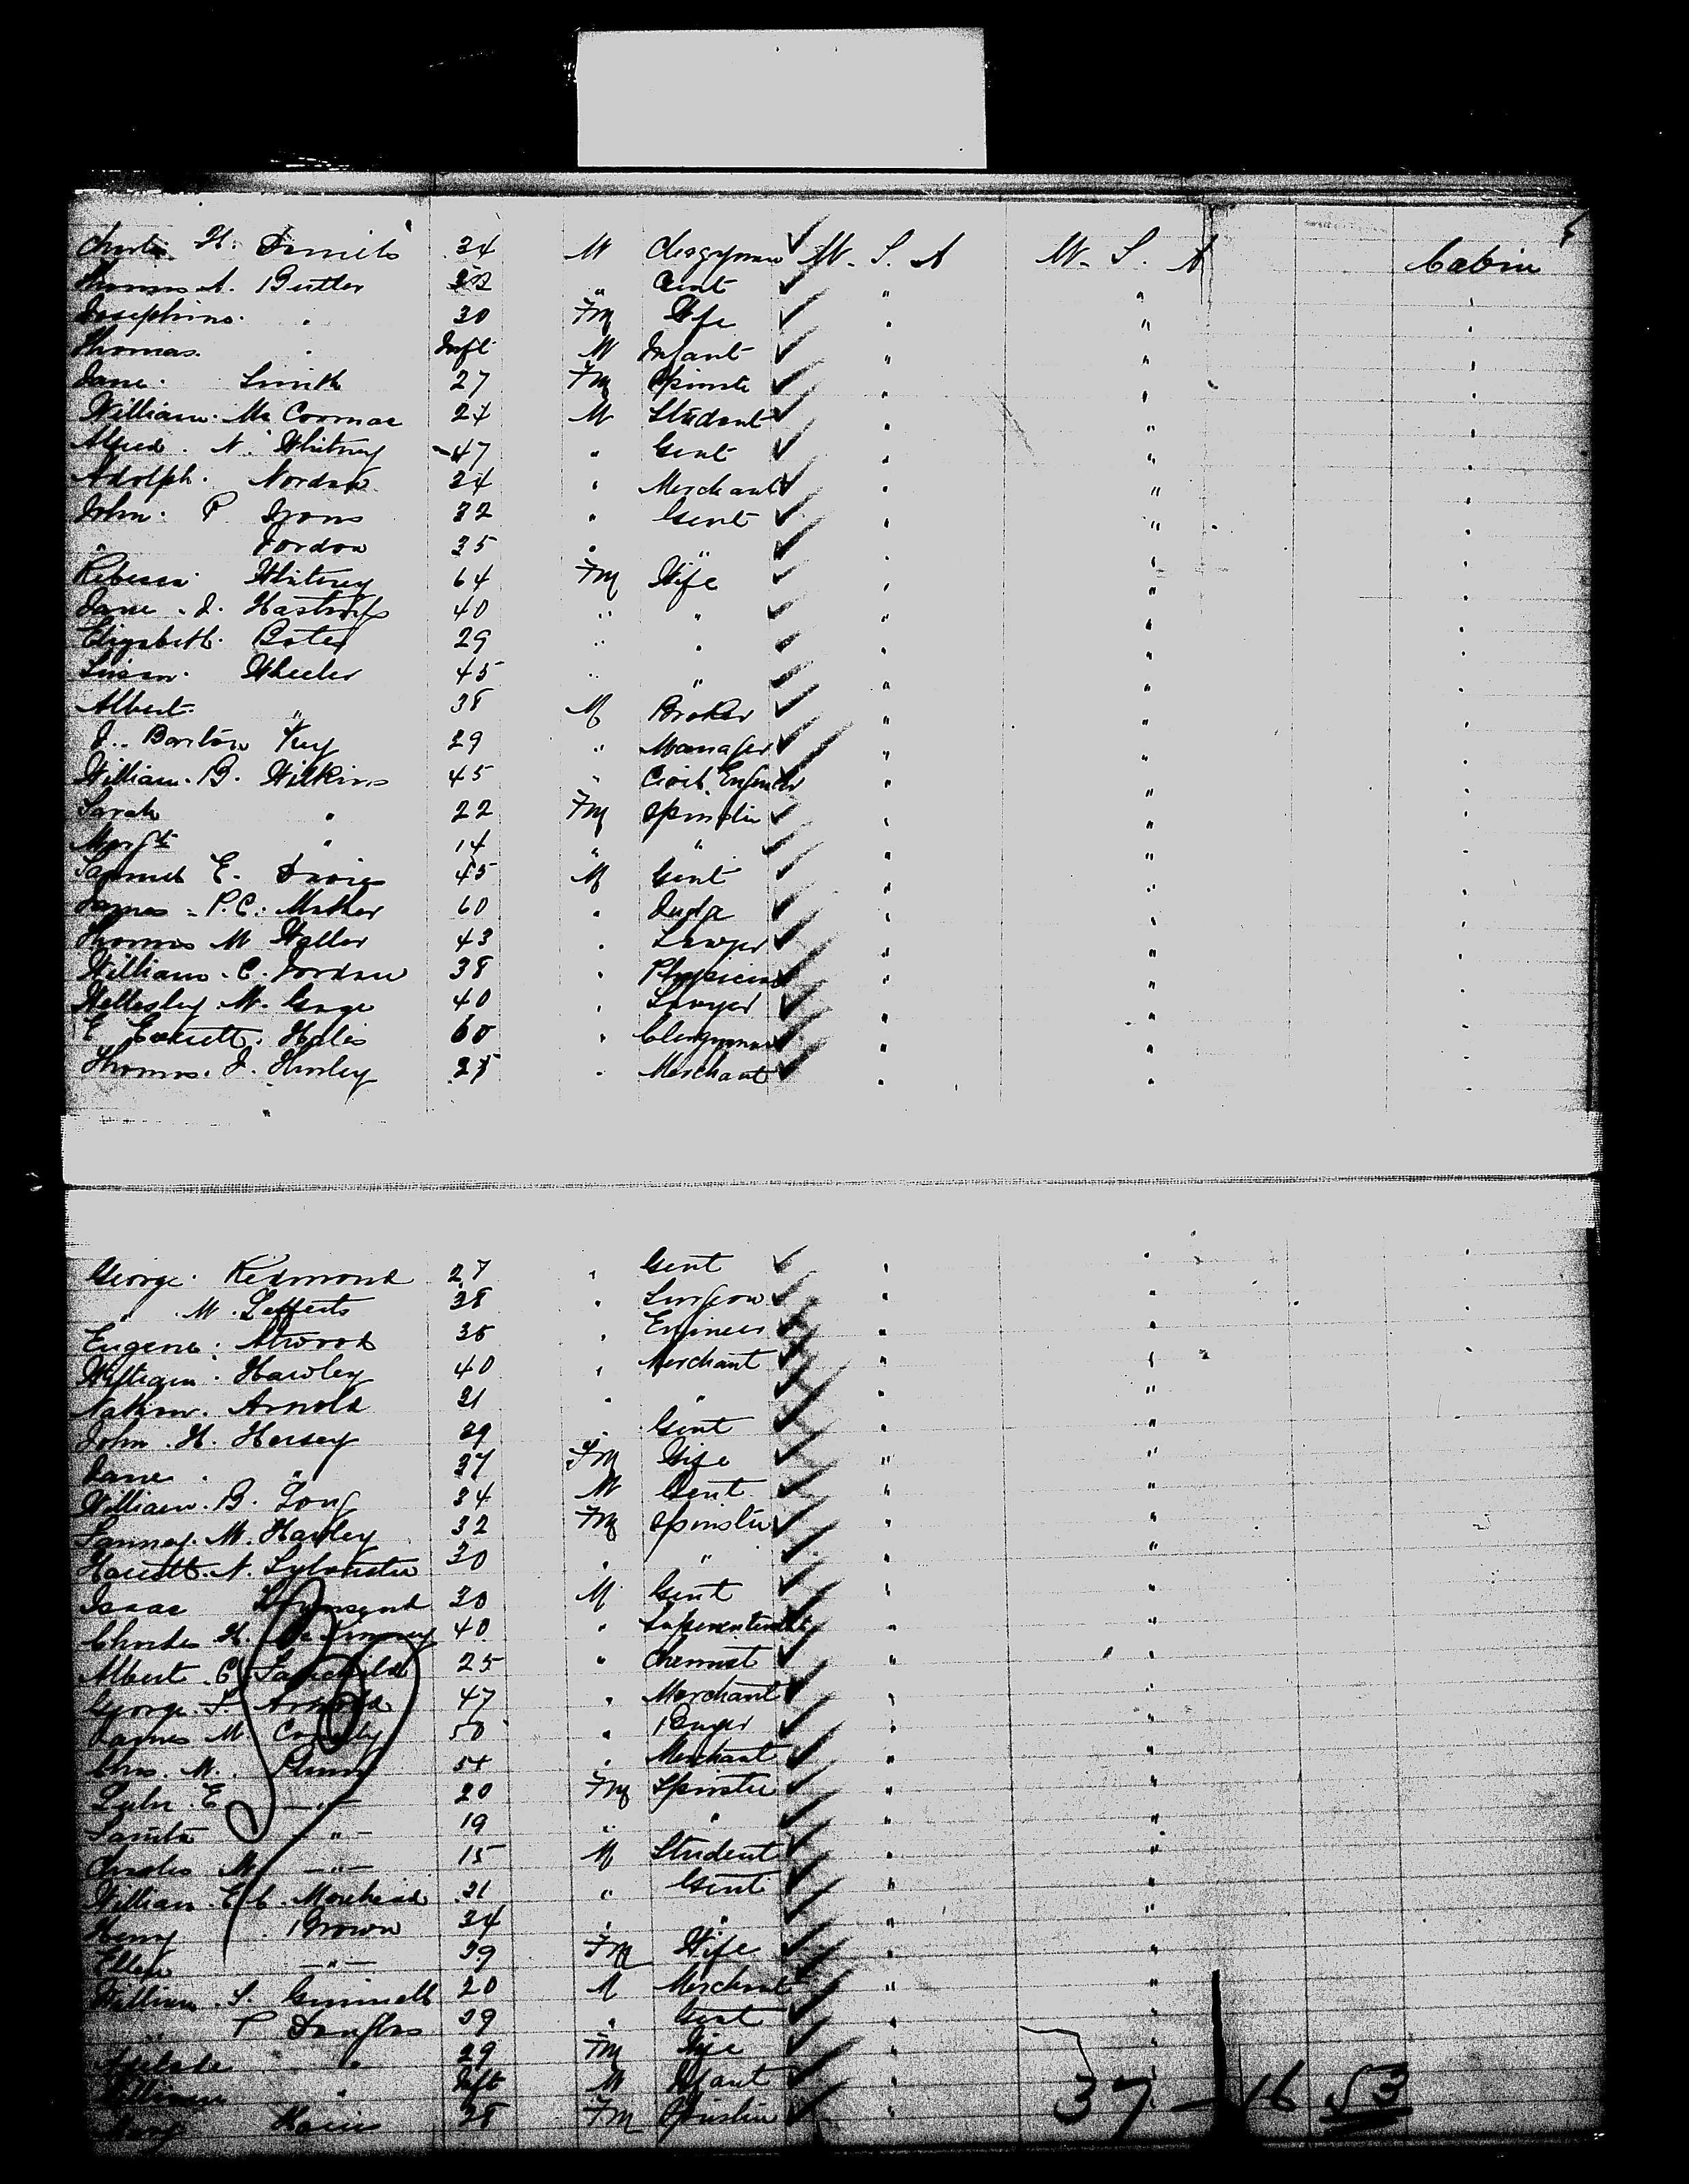 Charles H. Daniels 34 M Clergyman U. S. A U. S. A Cabin
Thomas A. Butler 32 " Gent " " "
Josephine " 30 Fm Wife " " "
Thomas " Inft M Infant " " "
Jane Smith 27 Fm Spinster " " "
William Mc Cormac 24 M Student " " "
Alfred N. Whitney 47 " Gent " " "
Adolph Nordan 24 " Merchant " " "
John P Irons 32 " Gent " " "
" Jordon 35 " " " " "
Rebecca Whitney 64 Fm Wife " " "
Jane J. 40 " " " " "
Elizabeth 29 " " " " "
Wheeler 45 " " " " "
Albert " 38 M Broker " " "
J. Barton Key 29 " Manager " " "
William B. Wilkins 45 " Civil Engineer " " "
Sarah " 22 Fm Spinster " " "
Margt " 14 " " " " "
Samuel E. Davies 45 M Gent " " "
James P. C. Mather 60 " Judge " " "
Thomas M Waller 43 " Lawyer " " "
William C. Jordan 38 " Physician " " "
Wellesley W. Gage 40 " Lawyer " " "
E Everett Hales 60 " Clergyman " " "
Thomas J. Hurley " Merchant " " "
George Redmond 27 " Gent " " "
" M. Lefferts 38 " Surgeon " "
Eugene Atwood 35 " Engineer " "
William Hawley 40 " Merchant " "
Nathan Arnold 31 " " " "
John H. Hersey 39 " Gent " "
Jane " 37 Fm Wife " "
William B. Long 34 M Gent " "
M. Hawley 32 Fm Spinster " "
Harriett N. Sylvester 30 " " " "
Isaac Townsend 30 M Gent " "
Charles H. 40 " Superintendent " "
Albert C. Fairchild 25 " Chemist " "
George S. Arnold 47 " Merchant " "
James M 50 " " "
Chas. M. Plum 54 " Merchant " "
E — " — 20 Fm Spinster " "
— " — 19 " " " "
Charles M — " — 15 M Student " "
William E. C. Morehead 31 " Gent " "
Henry Brown 34 " " " "
Ellen — " — 39 Fm Wife " "
William S. Grinnell 20 M Merchant " "
" P Douglas 39 " Gent " "
Adelade " 29 Fm Wife " "
William " Inft M Infant " "
Mary 28 Fm Spinster " "
37 — 16 53